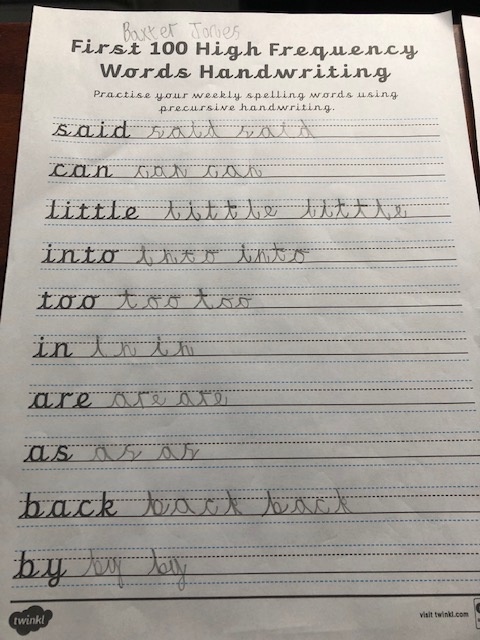 Baxter Jones
First 100 High Frequency
Words Handwriting
Practise your weekly spelling words using
precursive handwriting.
said said said
can can can
little little little
into into into
too too too
in in in
are are are
as as as
back back back
by by by
twinkl visit twinkl.com